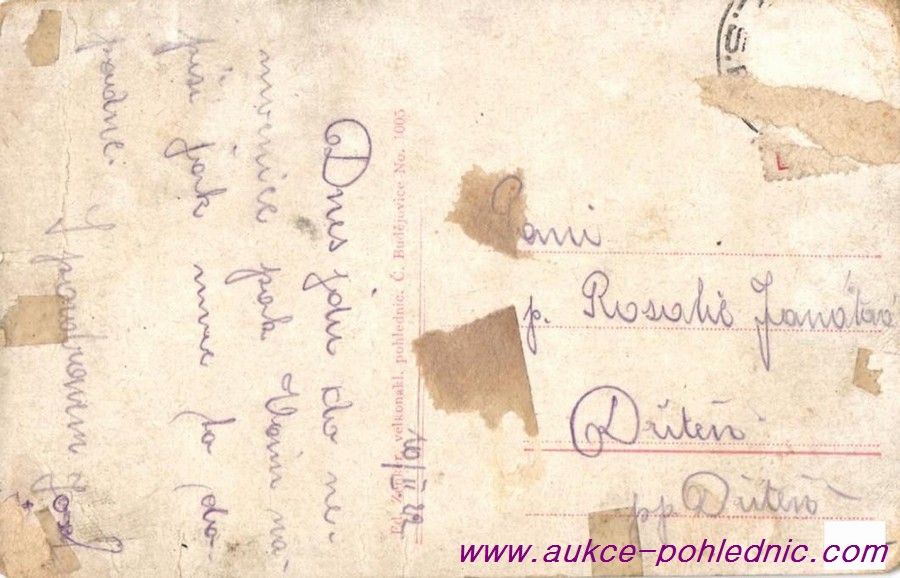 Dnes jdu do ne-
mocnice pak Vám na-
píši jak mne to do-
padne. S pozdravem Josef
10/II 29
velkonakl. pohlednic. Č. Budějovice No. 1005
Paní
p. Rosalie Janátová
Dříteň
pp Dříteň
L
www.aukce-pohlednic.com